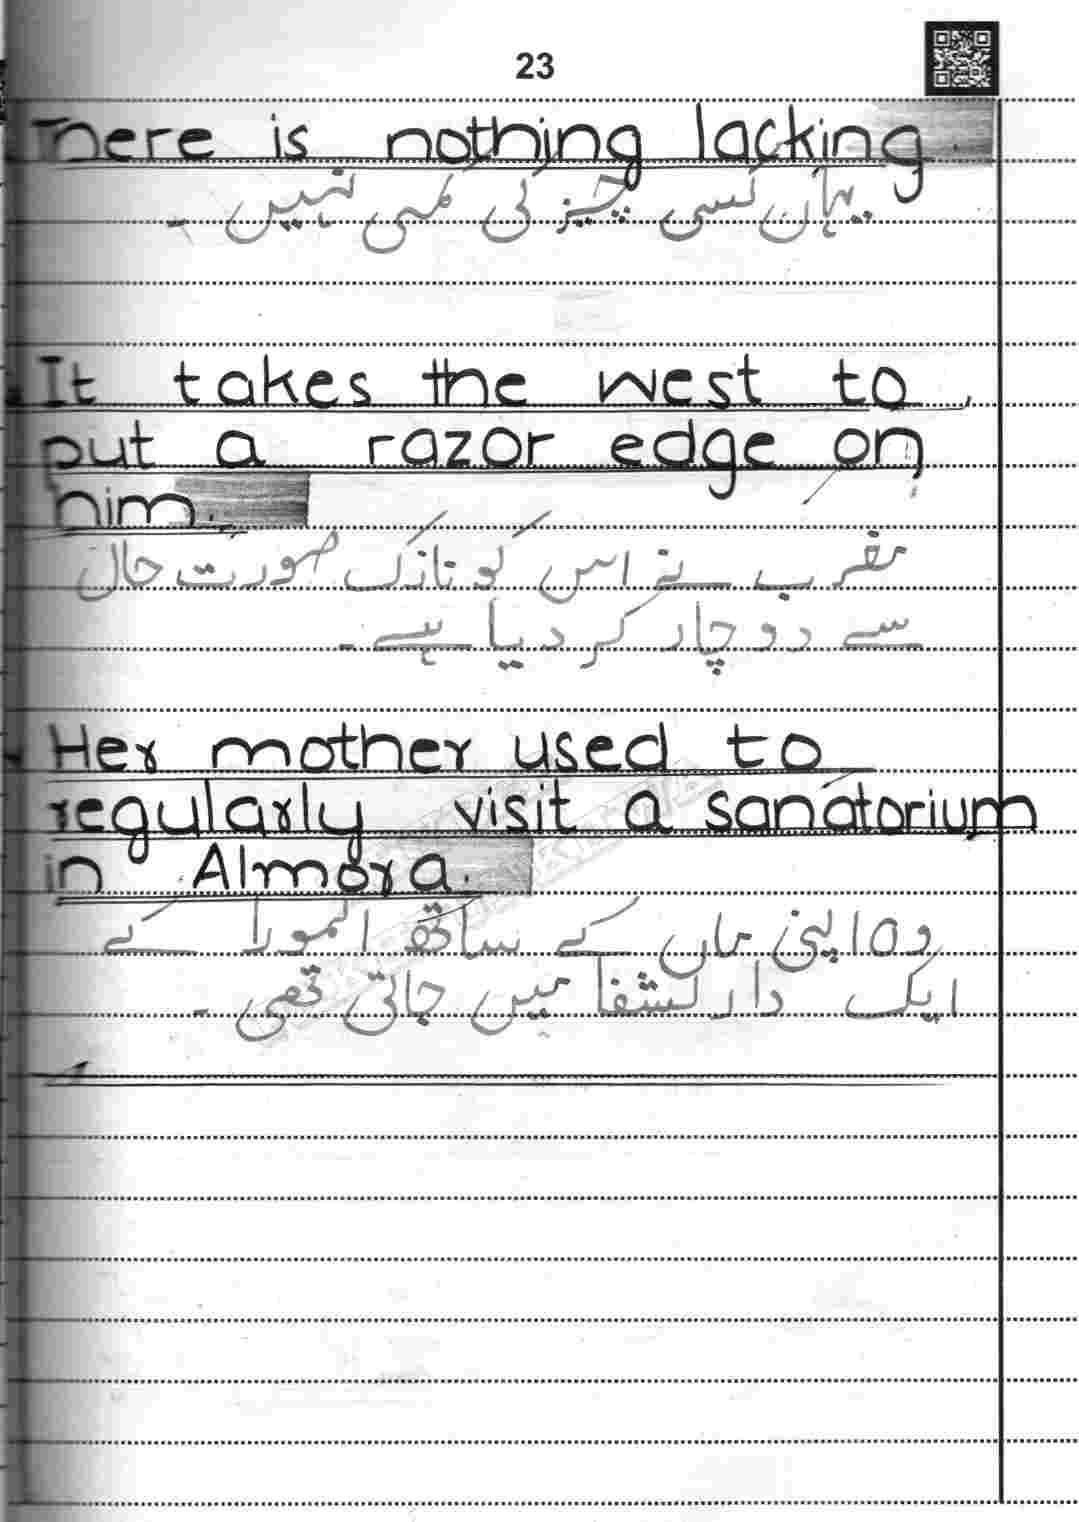 23
There is nothing lacking
یہاں کسی چیز کی کمی نہیں ۔
It takes the west to
put a razor edge on
him.
مغرب نے اس کو نازک صورت حال
سے دوچار کر دیا ہے ۔
Her mother used to
regularly visit a sanatorium
in Almora.
وہ اپنی ماں کے ساتھ المورا کے
ایک دار لشفا میں جاتی تھی ۔